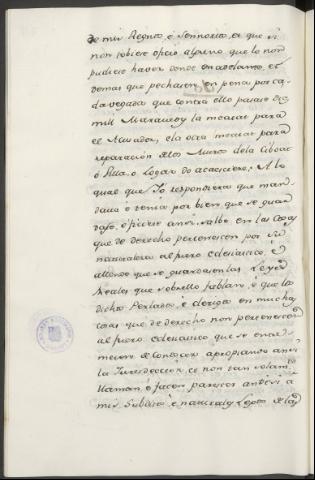 de mis Regnos é Sennorios, et que si
non tobiere oficio alguno que lo non
pudiese haver donde en adelante, et
demas que pechasen en pena por ca-
da vegada que contra ello pasare diez
mil Maravedis la meatat para
el Acusador, e la otra meatat para
reparacion delos Muros dela Cibdat
ó Villa, o Logar do acaesciere; A lo
qual que Yo respondiera que man-
dava é tenia por bien que se guar-
dase, é ficiese ansi, salvo en las cosas
que de derecho pertenescen por su
naturaleza al fuero eclesiastico, é
allende que se guardasen las Leyes
Reales que sobrello fablan, é que los
dichos Perlados, é clerigos en muchas
cosas que de derecho non pertenescen
al fuero eclesiastico que se entre-
meten de conoscer apropiando ansi
la Jurisdiccion, ce non tan solamte.
llaman, é facen parescer antesi á
mis Subditos, é naturales Legos de los